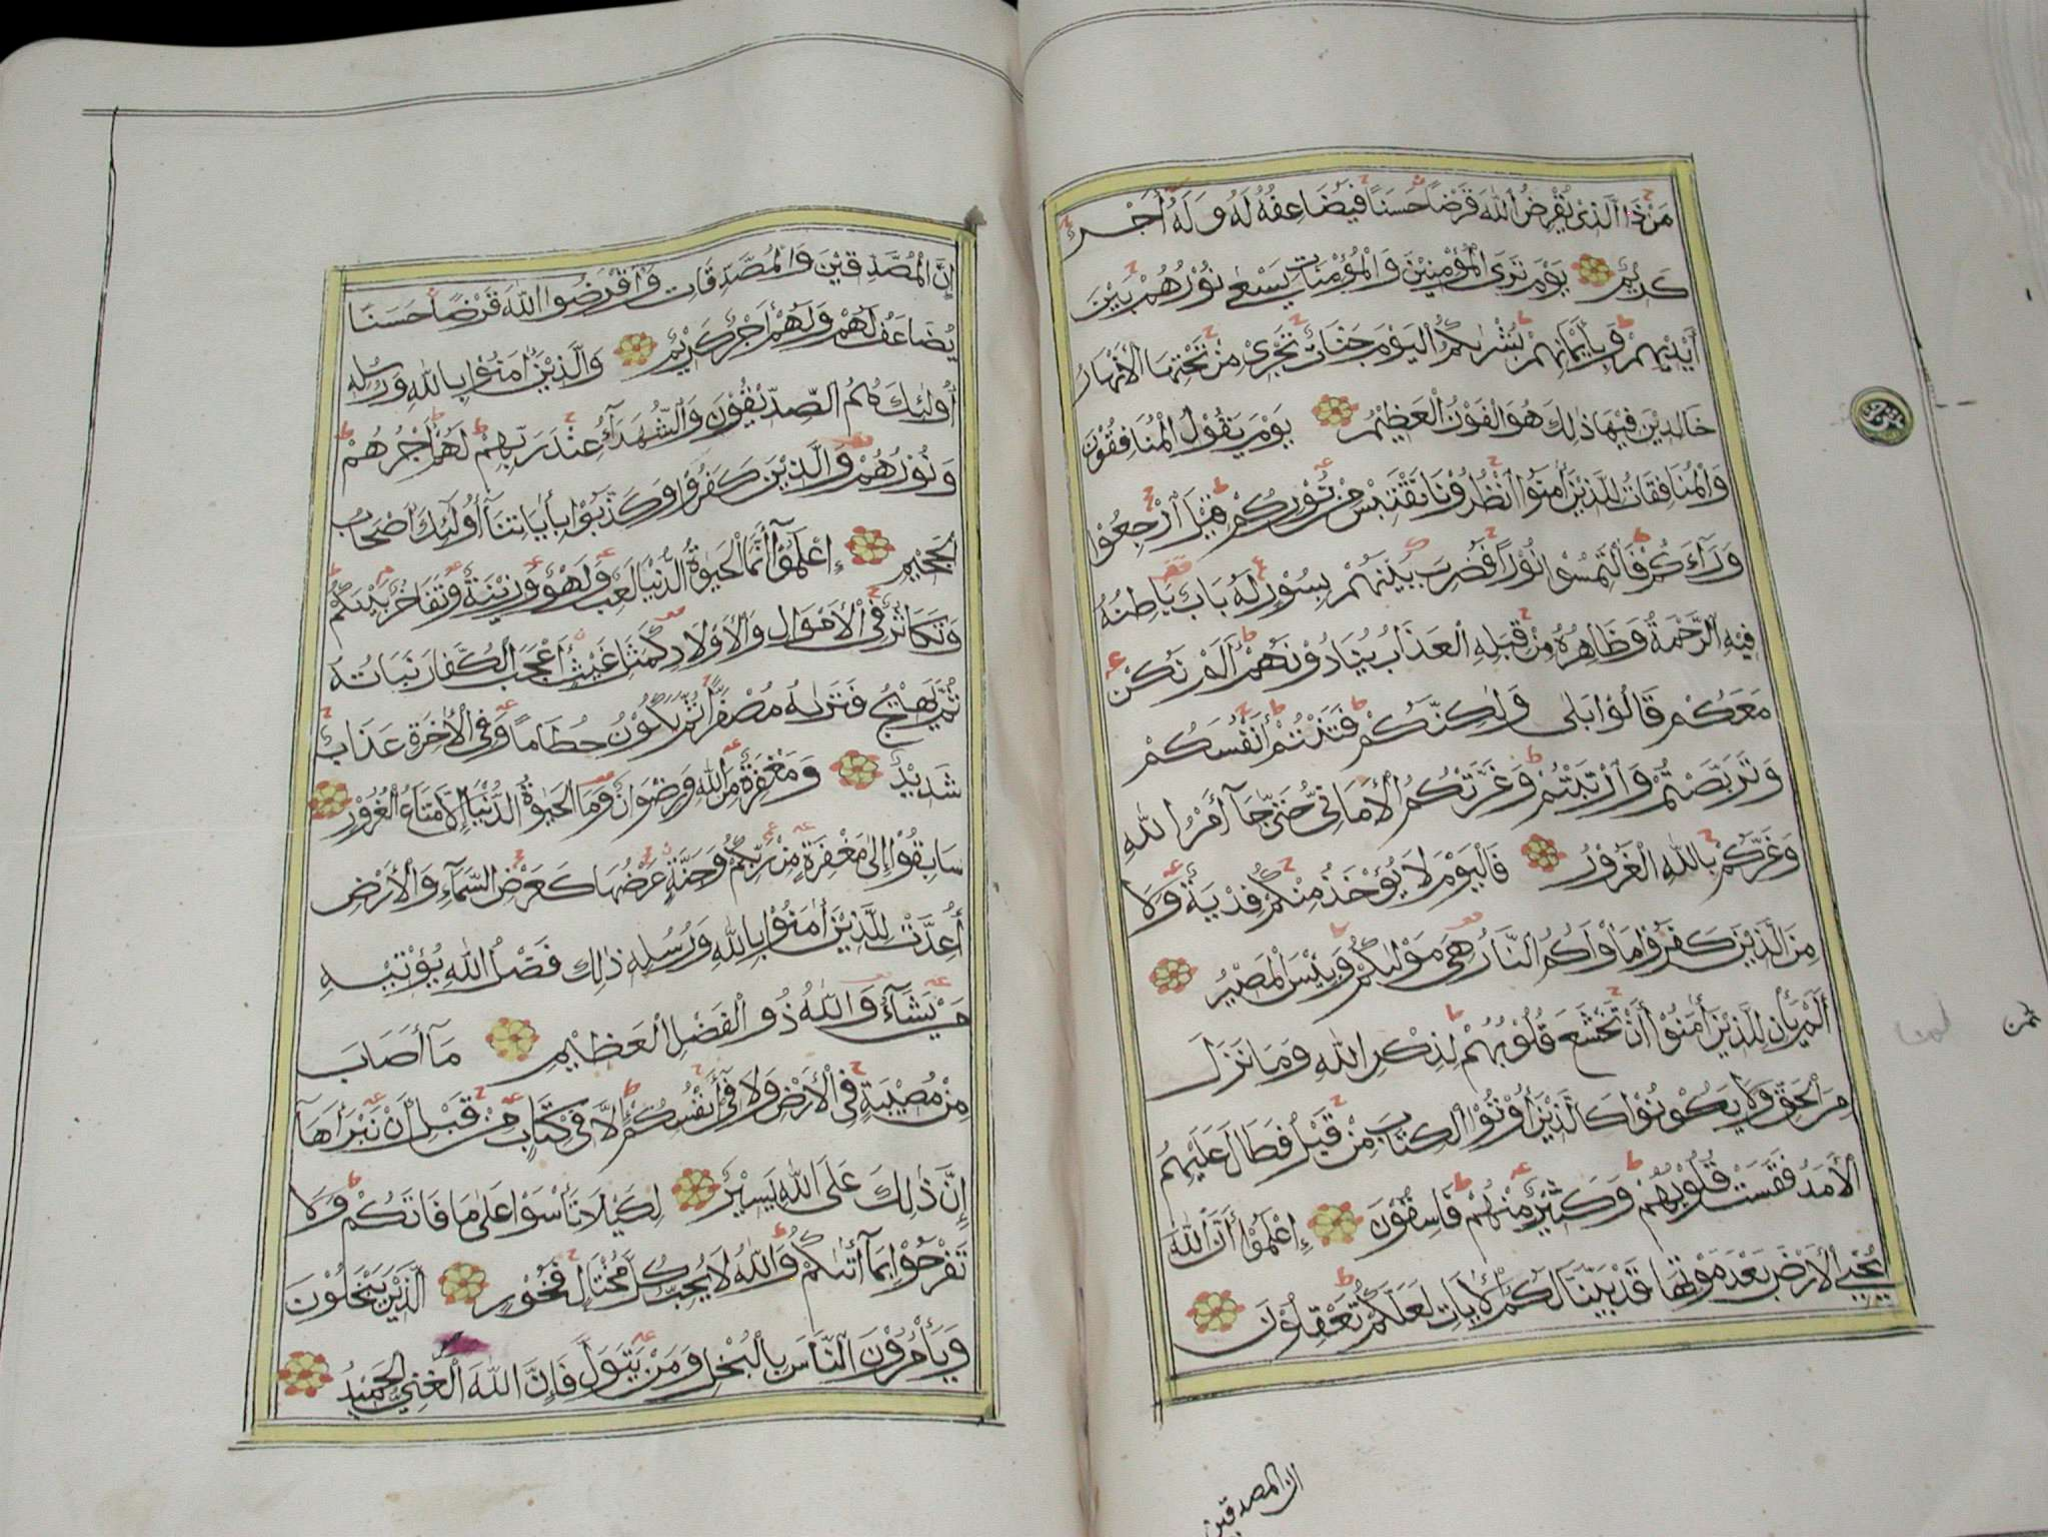 مَنْ ذَا الَّذِي يُقْرِضُ اللّٰهَ قَرْضًا حَسَنًا فَيُضَاعِفَهُ لَهُ وَلَهُ أَجْرٌ
كَرِيْمٌ يَوْمَ تَرَى الْمُؤْمِنِيْنَ وَالْمُؤْمِنَاتِ يَسْعٰى نُوْرُهُمْ بَيْنَ
أَيْدِيْهِمْ وَبِأَيْمَانِهِمْ بُشْرٰىكُمُ الْيَوْمَ جَنَّاتٌ تَجْرِيْ مِنْ تَحْتِهَا الْأَنْهَارُ
خَالِدِيْنَ فِيْهَا ذٰلِكَ هُوَ الْفَوْزُ الْعَظِيْمُ يَوْمَ يَقُوْلُ الْمُنَافِقُوْنَ
وَالْمُنَافِقَاتُ لِلَّذِيْنَ أٰمَنُوْا انْظُرُوْنَا نَقْتَبِسْ مِنْ نُّوْرِكُمْ قِيْلَ ارْجِعُوْا
وَرَآءَكُمْ فَالْتَمِسُوْا نُوْرًا فَضُرِبَ بَيْنَهُمْ بِسُوْرٍ لَهُ بَابٌ بَاطِنُهُ
فِيْهِ الرَّحْمَةُ وَظَاهِرُهُ مِنْ قِبَلِهِ الْعَذَابُ يُنَادُوْنَهُمْ أَلَمْ نَكُنْ
مَعَكُمْ قَالُوْا بَلٰى وَلٰكِنَّكُمْ فَتَنْتُمْ أَنْفُسَكُمْ
وَتَرَبَّصْتُمْ وَارْتَبْتُمْ وَغَرَّتْكُمُ الْأَمَانِيُّ حَتّٰى جَآءَ أَمْرُ اللّٰهِ
وَغَرَّكُمْ بِاللّٰهِ الْغَرُوْرُ فَالْيَوْمَ لَا يُؤْخَذُ مِنْكُمْ فِدْيَةٌ وَلَا
مِنَ الَّذِيْنَ كَفَرُوْا مَأْوٰاكُمُ النَّارُ هِيَ مَوْلٰىكُمْ وَبِئْسَ الْمَصِيْرُ
أَلَمْ يَأْنِ لِلَّذِيْنَ أٰمَنُوْا أَنْ تَخْشَعَ قُلُوْبُهُمْ لِذِكْرِ اللّٰهِ وَمَا نَزَلَ
مِنَ الْحَقِّ وَلَا يَكُوْنُوْا كَالَّذِيْنَ أُوْتُوْا الْكِتَابَ مِنْ قَبْلُ فَطَالَ عَلَيْهِمُ
الْأَمَدُ فَقَسَتْ قُلُوْبُهُمْ وَكَثِيْرٌ مِنْهُمْ فَاسِقُوْنَ إِعْلَمُوْا أَنَّ اللّٰهَ
يُحْيِي الْأَرْضَ بَعْدَ مَوْتِهَا قَدْ بَيَّنَّا لَكُمُ الْأٰيَاتِ لَعَلَّكُمْ تَعْقِلُوْنَ
ان المصدقين
ثمن
إِنَّ الْمُصَّدِّقِيْنَ وَالْمُصَّدِّقَاتِ وَأَقْرَضُوا اللّٰهَ قَرْضًا حَسَنًا
يُضَاعَفُ لَهُمْ وَلَهُمْ أَجْرٌ كَرِيْمٌ وَالَّذِيْنَ أٰمَنُوْا بِاللّٰهِ وَرُسُلِهِ
أُولٰئِكَ هُمُ الصِّدِّيْقُوْنَ وَالشُّهَدَآءُ عِنْدَ رَبِّهِمْ لَهُمْ أَجْرُهُمْ
وَنُوْرُهُمْ وَالَّذِيْنَ كَفَرُوْا وَكَذَّبُوْا بِأٰيَاتِنَآ أُولٰئِكَ أَصْحَابُ
الْجَحِيْمِ إِعْلَمُوْآ أَنَّمَا الْحَيٰوةُ الدُّنْيَا لَعِبٌ وَلَهْوٌ وَزِيْنَةٌ وَتَفَاخُرٌ بَيْنَكُمْ
وَتَكَاثُرٌ فِي الْأَمْوَالِ وَالْأَوْلَادِ كَمَثَلِ غَيْثٍ أَعْجَبَ الْكُفَّارَ نَبَاتُهُ
ثُمَّ يَهِيْجُ فَتَرٰىهُ مُصْفَرًّا ثُمَّ يَكُوْنُ حُطَامًا وَفِي الْأٰخِرَةِ عَذَابٌ
شَدِيْدٌ وَمَغْفِرَةٌ مِنَ اللّٰهِ وَرِضْوَانٌ وَمَا الْحَيٰوةُ الدُّنْيَا إِلَّا مَتَاعُ الْغُرُوْرِ
سَابِقُوْا إِلٰى مَغْفِرَةٍ مِنْ رَبِّكُمْ وَجَنَّةٍ عَرْضُهَا كَعَرْضِ السَّمَآءِ وَالْأَرْضِ
أُعِدَّتْ لِلَّذِيْنَ أٰمَنُوْا بِاللّٰهِ وَرُسُلِهِ ذٰلِكَ فَضْلُ اللّٰهِ يُؤْتِيْهِ
مَنْ يَشَآءُ وَاللّٰهُ ذُو الْفَضْلِ الْعَظِيْمِ مَآ أَصَابَ
مِنْ مُصِيْبَةٍ فِي الْأَرْضِ وَلَا فِيْ أَنْفُسِكُمْ إِلَّا فِيْ كِتَابٍ مِنْ قَبْلِ أَنْ نَبْرَأَهَآ
إِنَّ ذٰلِكَ عَلَى اللّٰهِ يَسِيْرٌ لِكَيْلَا تَأْسَوْا عَلٰى مَا فَاتَكُمْ وَلَا
تَفْرَحُوْا بِمَآ أٰتٰىكُمْ وَاللّٰهُ لَا يُحِبُّ كُلَّ مُخْتَالٍ فَخُوْرٍ الَّذِيْنَ يَبْخَلُوْنَ
وَيَأْمُرُوْنَ النَّاسَ بِالْبُخْلِ وَمَنْ يَتَوَلَّ فَإِنَّ اللّٰهَ الْغَنِيُّ الْحَمِيْدُ